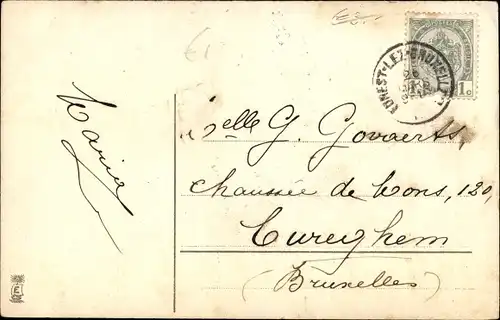 Maria
Melle G. Govaerts
chaussée de Mons, 120,
Cureghem
(Bruxelles)
FOREST-LEZ-BRUXELLES
1c
£1